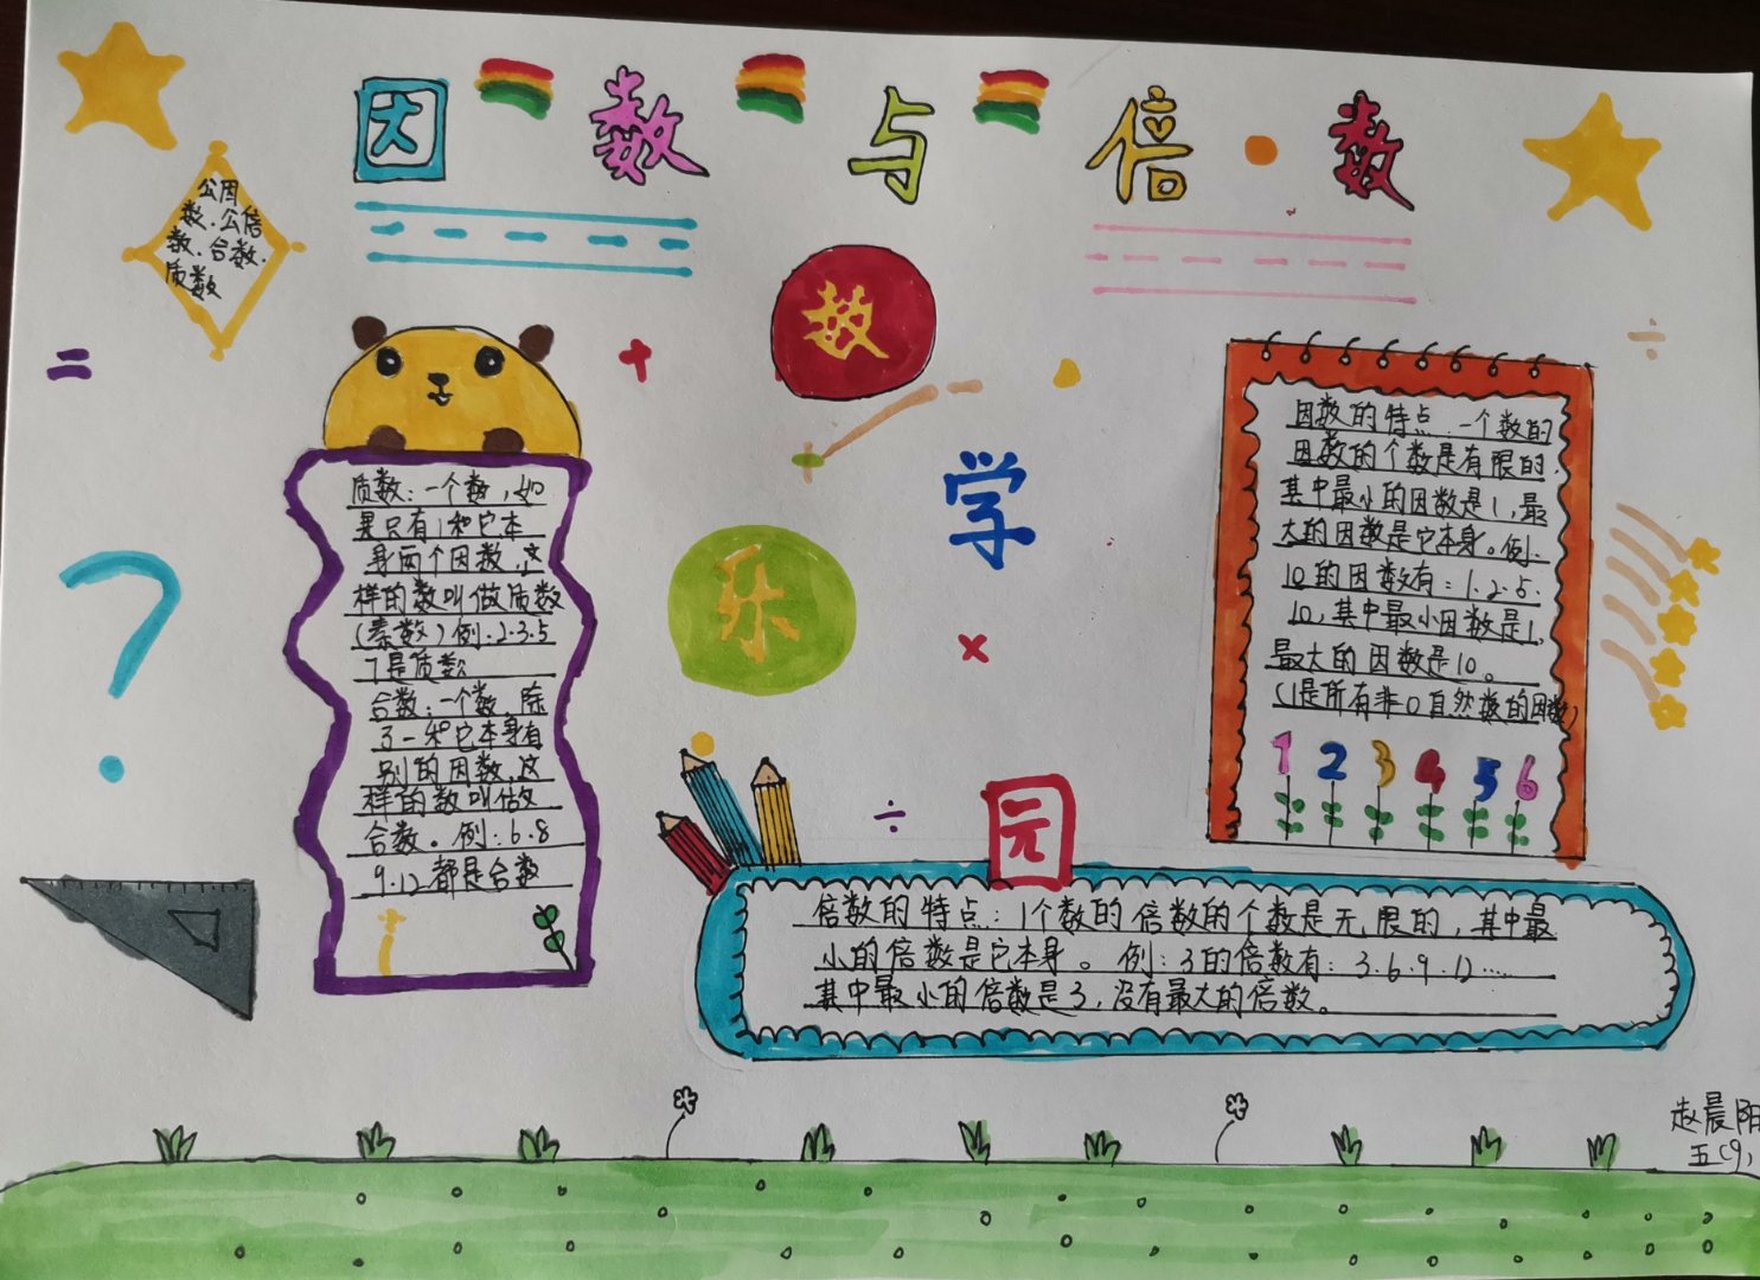 因数与倍数
公因
数.公倍
数.合数.
质数
数
学
乐
园
质数:一个数,如
果只有1和它本
身两个因数,这
样的数叫做质数
(素数)例:2.3.5
7是质数
合数:一个数,除
了一和它本身有
别的因数,这
样的数叫做
合数。例:6.8
9.12都是合数
因数的特点.一个数的
因数的个数是有限的.
其中最小的因数是1,最
大的因数是它本身。例.
10的因数有:1.2.5.
10,其中最小因数是1,
最大的因数是10。
(1是所有非0自然数的因数)
1 2 3 4 5 6
倍数的特点:1个数的倍数的个数是无限的,其中最
小的倍数是它本身。例:3的倍数有:3.6.9.12……
其中最小的倍数是3,没有最大的倍数。
赵晨阳
五(9)